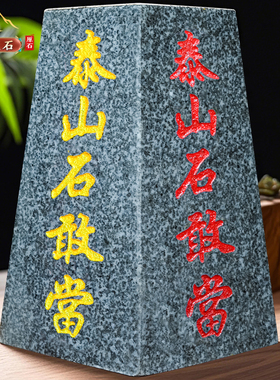 泰山石敢當
泰山石敢當
石